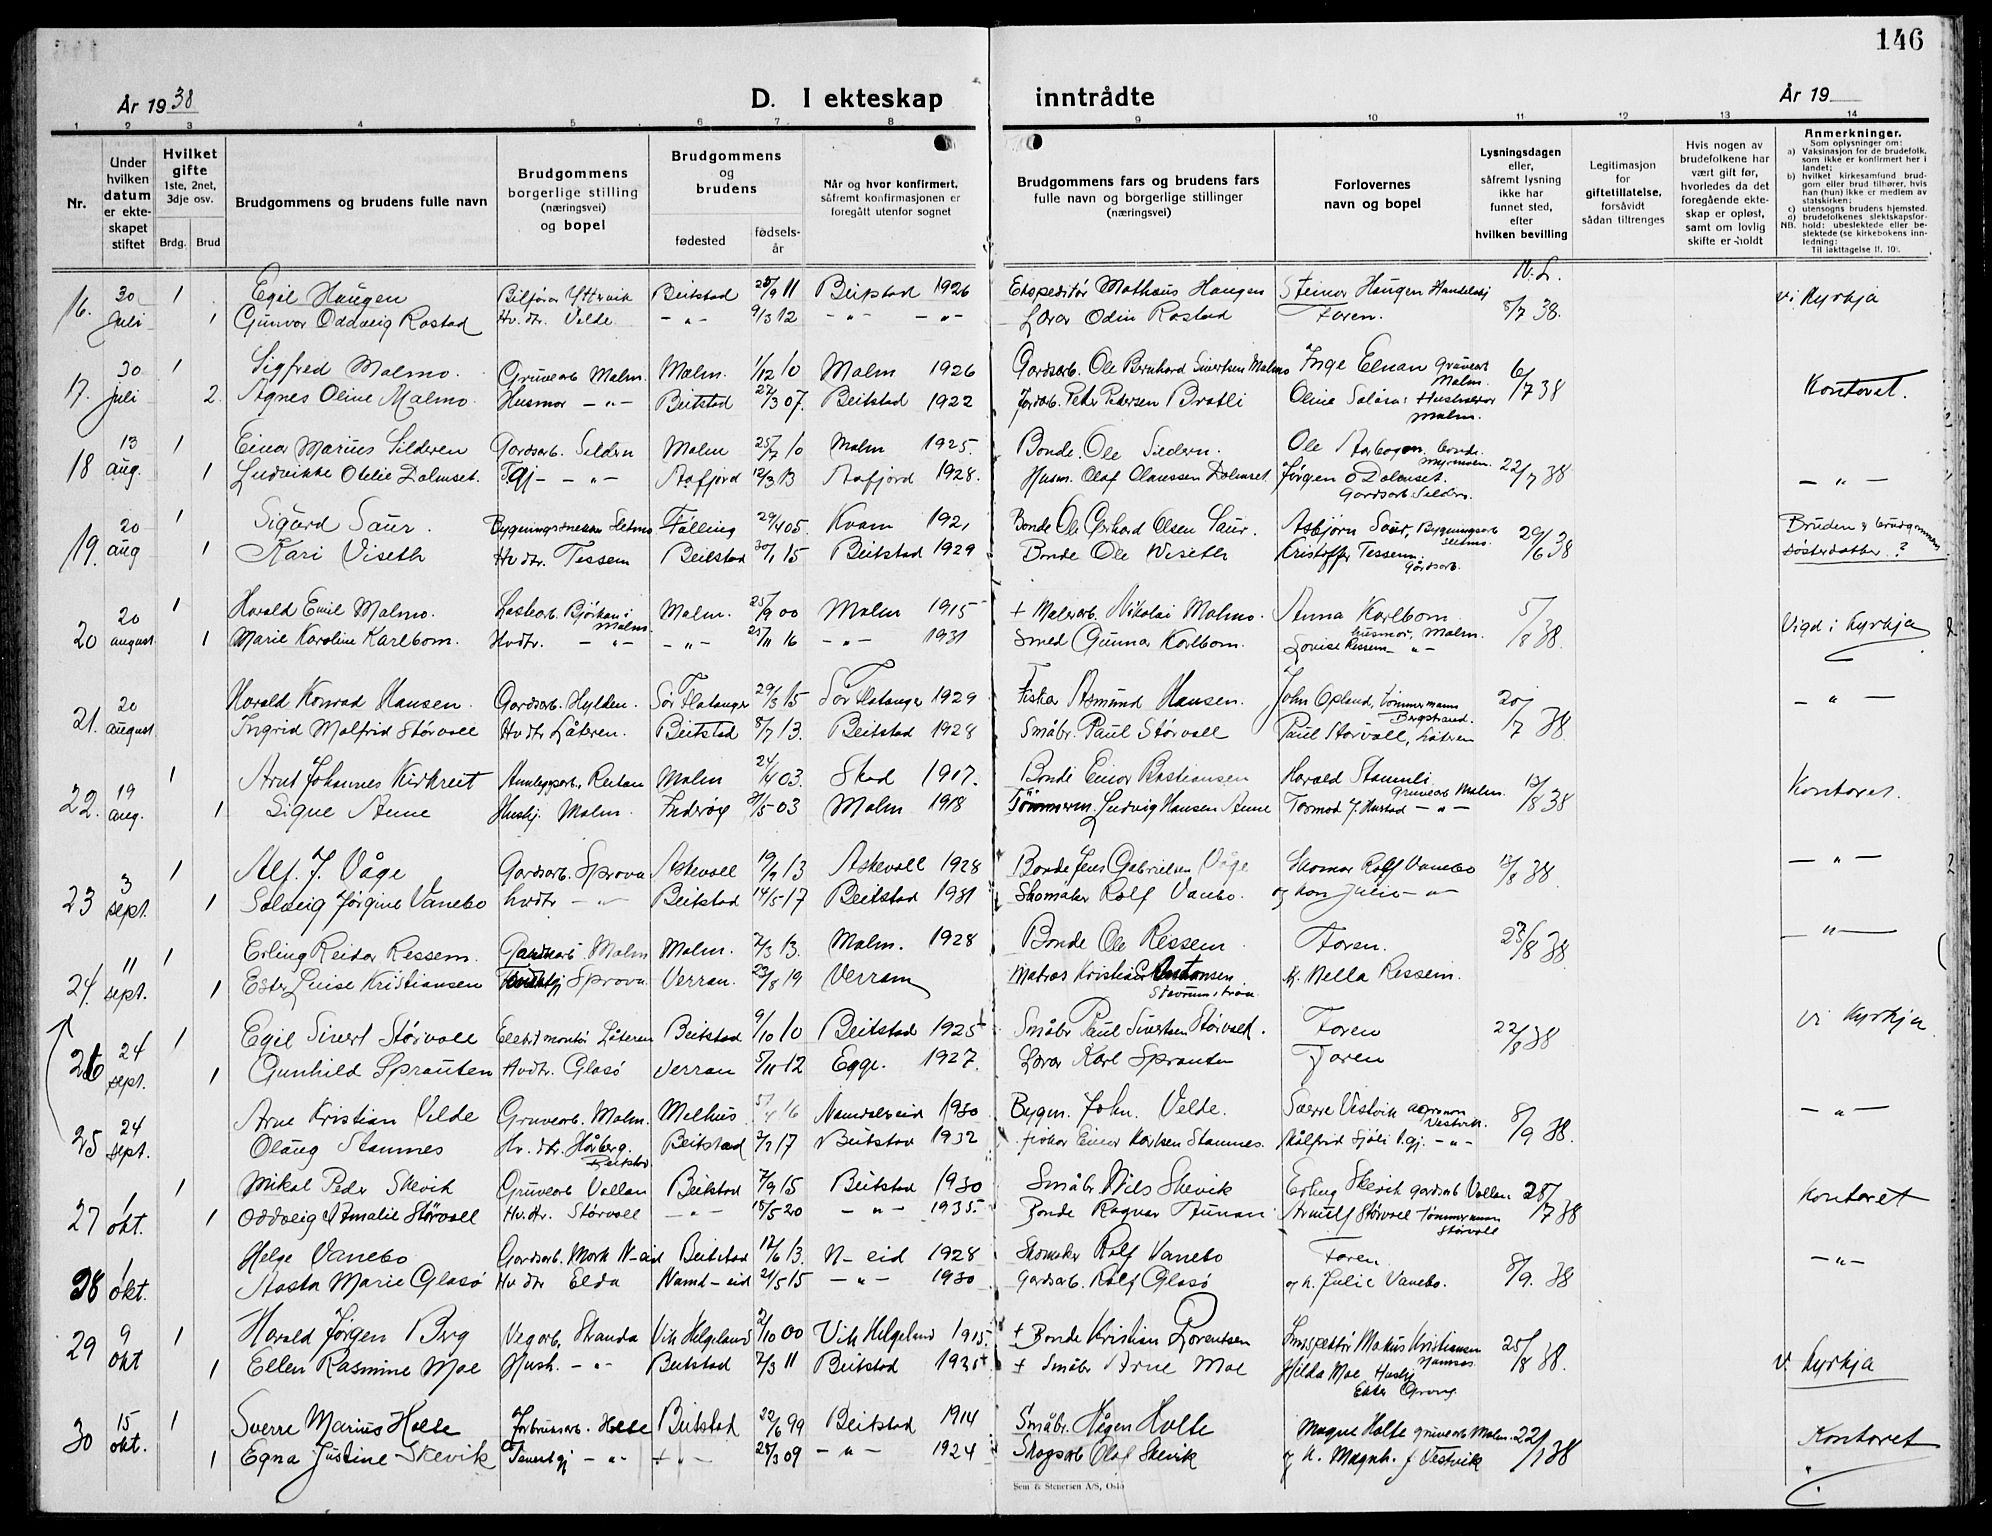 146
År 19 38
D. I ekteskap inntrådte
År 19
1 2 3 4 5 6 7 8 9 10 11 12 13 14
Nr.
Under hvilken datum er ekteskapet stiftet
Hvilket gifte
1ste, 2net, 3dje osv.
Brdg. Brud
Brudgommens og brudens fulle navn
Brudgommens borgerlige stilling (næringsvei) og bopel
Brudgommens og brudens
fødested
fødselsår
Når og hvor konfirmert, såfremt konfirmasjonen er foregått utenfor sognet
Brudgommens fars og brudens fars fulle navn og borgerlige stillinger (næringsvei)
Forlovernes navn og bopel
Lysningsdagen eller, såfremt lysning ikke har funnet sted, efter hvilken bevilling
Legitimasjon for giftetillatelse, forsåvidt sådan tiltrenges
Hvis nogen av brudefolkene har vært gift før, hvorledes da det foregående ekteskap er opløst, samt om lovlig skifte er holdt
Anmerkninger.
Som oplysninger om:
a) Vaksinasjon for de brudefolk, som ikke er konfirmert her i landet;
b) hvilket kirkesamfund brudgom eller brud tilhører, hvis han (hun) ikke er medlem av statskirken;
c) utensogns brudens hjemsted.
d) brudefolkenes slektskapsforhold: ubeslektede eller beslektede (se kirkebokens innledning:
NB. Til iakttagelse II. 10).
16. 30 juli 1 Egil Haugen Biltjører Yttervik Beitstad 25/9 11 Beitstad 1926 Ekspeditør Mathæus Haugen Steinar Haugen Handelsbj N. L. 8/7 38. vi Kyrkja
1 Gunvor Oddveig Rostad Hv. dtr. Velde - " - 9/3 12 - " - - " - Lærer Odin Rostad Faren.
17. 30 juli 1 Sigfred Malmo. Gruvearb Malm. Malm. 1/12 10 Malm 1926 Gardsarb. Ole Bernhard Sivertsen Malmo Inge Elnan gruvearb Malm. 6/7 38 Kontoret.
2. Agnes Oline Malmo Husmor - " - Beitstad 22/3 07. Beitstad 1922 Jordarb. Peter Pedersen Bratli Oline Malm.
18 13 aug. 1 Einar Marius Sildren Gardsarb. Sildren Malm 25/7 10 Malm 1925. Bonde. Ole Sildren. Ole 22/7 38 - " -
1 Ludvikke Otelie Dalmset. Tgj - " - Aafjord 12/3 13 Aafjord 1928. Husm. Olaf Claussen Dalmset Jørgen O Dalmset. Gardsarb Sildren.
19. 20 aug 1 Sigurd Saur. Bygningssnekker Sletmo Følling 29/4 05. Kvam 1921 Bonde Ole Gerhard Olsen Saur. Asbjørn Saur, Bygningsarb Sletmo. 29/6 38 Bruden & brudgommens søsterdatter?
1 Kari Viseth Hv dtr. Tessem Beitstad 30/1 15 Beitstad 1929 Bonde Ole Wiseth Kristoffer Tessem. Gårdsarb.
20 20 august 1 Harald Emil Malmo. Lastearb Bjørkan i Malm Malm. 25/9 00 Malm 1915 + Malerarb. Nikolai Malmo. Anna Karlbom husmor, Malm. 5/8 38. Vigd i Kyrkja
1 Marie Karoline Karlbom. Hvdtr. - " - - " - 25/11 16 - " - 1931 Smed Gunnar Karlbom. Lovise Ressem - " -
21. 20 august 1 Harald Konrad Hansen. Gardsarb. Hylden. Sør Flatanger 29/3 15 Sør Flatanger 1929 Fisker Asmund Hansen. John Opland, tømmermann Bergstrand. 20/7 38. - " -
Ingrid Malfrid Størvoll Hvdtr Låteren. Beitstad 8/7 13. Beitstad 1928 Småbr. Paul Størvoll Paul Størvoll, Låteren
22. 19 aug. 1 Arnt Johannes Kirkreit Anleggsarb. Reitan Malm 24/4 03. Skod 1917. Bonde Einar Bastiansen Harald Stamnli Gruvearb Malm. 13/8 38 Kontoret.
1 Signe Aune Hushj. Malm. Inderøy 3/5 03 Malm 1918 Tømmerm. Ludvig Hansen Aune Tormod J. Hustad - " -
23 3 sept. 1 Alf. J. Våge Gardsarb. Sprova Askvoll 19/2 13 Askvoll 1928 Bonde Jens Gabrielsen Våge Skomar Rolf Vanebo 12/8 38. - " -
1 Solveig Jørgine Vanebo hvdtr - " - Beitstad 14/5 17 Beitstad 1931 Skomaker Rolf Vanebo. og kon Julie - " -
24. 11 sept. 1 Erling Reidar Ressem. Gardsarb Malm Malm. 7/3 13. Malm. 1928 Bonde Ole Ressem Faren. 23/8 38 - " -
1 Ester Luise Kristiansen Sprova Verran. 23/8 19 Verran Matros Kristian K. Nella Ressem.
26 24 sept. 1 Egil Sivert Størvoll Elektr montør Låteren Beitstad 9/10 10 Beitstad 1925 Småbr Paul Sivertsen Størvoll. Faren 22/8 38 vi Kyrkja
1 Gunhild Sprauten Hvdtr. Glosø Verran 5/11 12 Egge. 1927. Lærer Karl Sprauten Faren
25 24 sept. Arne Kristian Velde Gruvearb. Malm. Melhus 5/4 16 Namdalseid 1930 Bygm. John. Velde. Sverre Vestvik Vestvik. 8/9 38. - " -
Olaug Stamnes Hv. dtr. Håberg. Beitstad Beitstad 2/7 17 Beitstad 1932 Fisker Einar Karlsen Stamnes. Målfrid Sjøli tgj. - " -
27 1 okt. 1 Mikal Peder Skevik Gruvearb Vollan Beitstad 7/9 15 Beitstad 1930 Småbr. Nils Skevik Erling Skevik gardsarb Vollan 25/7 38 Kontoret
1 Oddveig Amalie Størvoll Hv. dtr. Størvoll - " - 15/5 20 - " - 1935 Bonde Ragnar Aunan Arnulf Størvoll tømmermann Størvoll
28 1 okt. Helge Vanebo Gardsarb. Mork N-eid Beitstad 12/6 13. N-eid 1928 Skomaker Rolf Vanebo Faren 8/9. 38 - " -
Aasta Marie Glosø Hv dtr Elda Namd-eid 21/5 15 - " - 1930 Gardsarb. Rolf Glosø og k. Julie Vanebo.
29 9 okt 1 Harald Jørgen Berg Vegarb. Stranda Vik Helgeland 2/10 00 Vik Helgeland 1915. + Bonde Kristian Lorentsen Inspektør Makus Kristiansen Namsos 25/8 38. vi Kyrkja
1 Ellen Rasmine Moe Hush. - " - Beitstad 7/3 11 Beitstad 1925 + Småbr Arne Moe Hilda Moe Hushj Ekker Grong
30 15 okt. 1 Sverre Marius Holte Forbruksarb. Holte Beitstad 22/6 99 Beitstad 1914 Småbr. Hågen Holte Magne Holte gruvearb Malm. 22/1 38 Kontoret
1 Egna Justine Skevik Tenestgj - " - - " - 25/3 09 - " - 1924 Skogsarb Olaf Skevik og k. Magnh. J. Vestvik
Sem & Stenersen A/S, Oslo